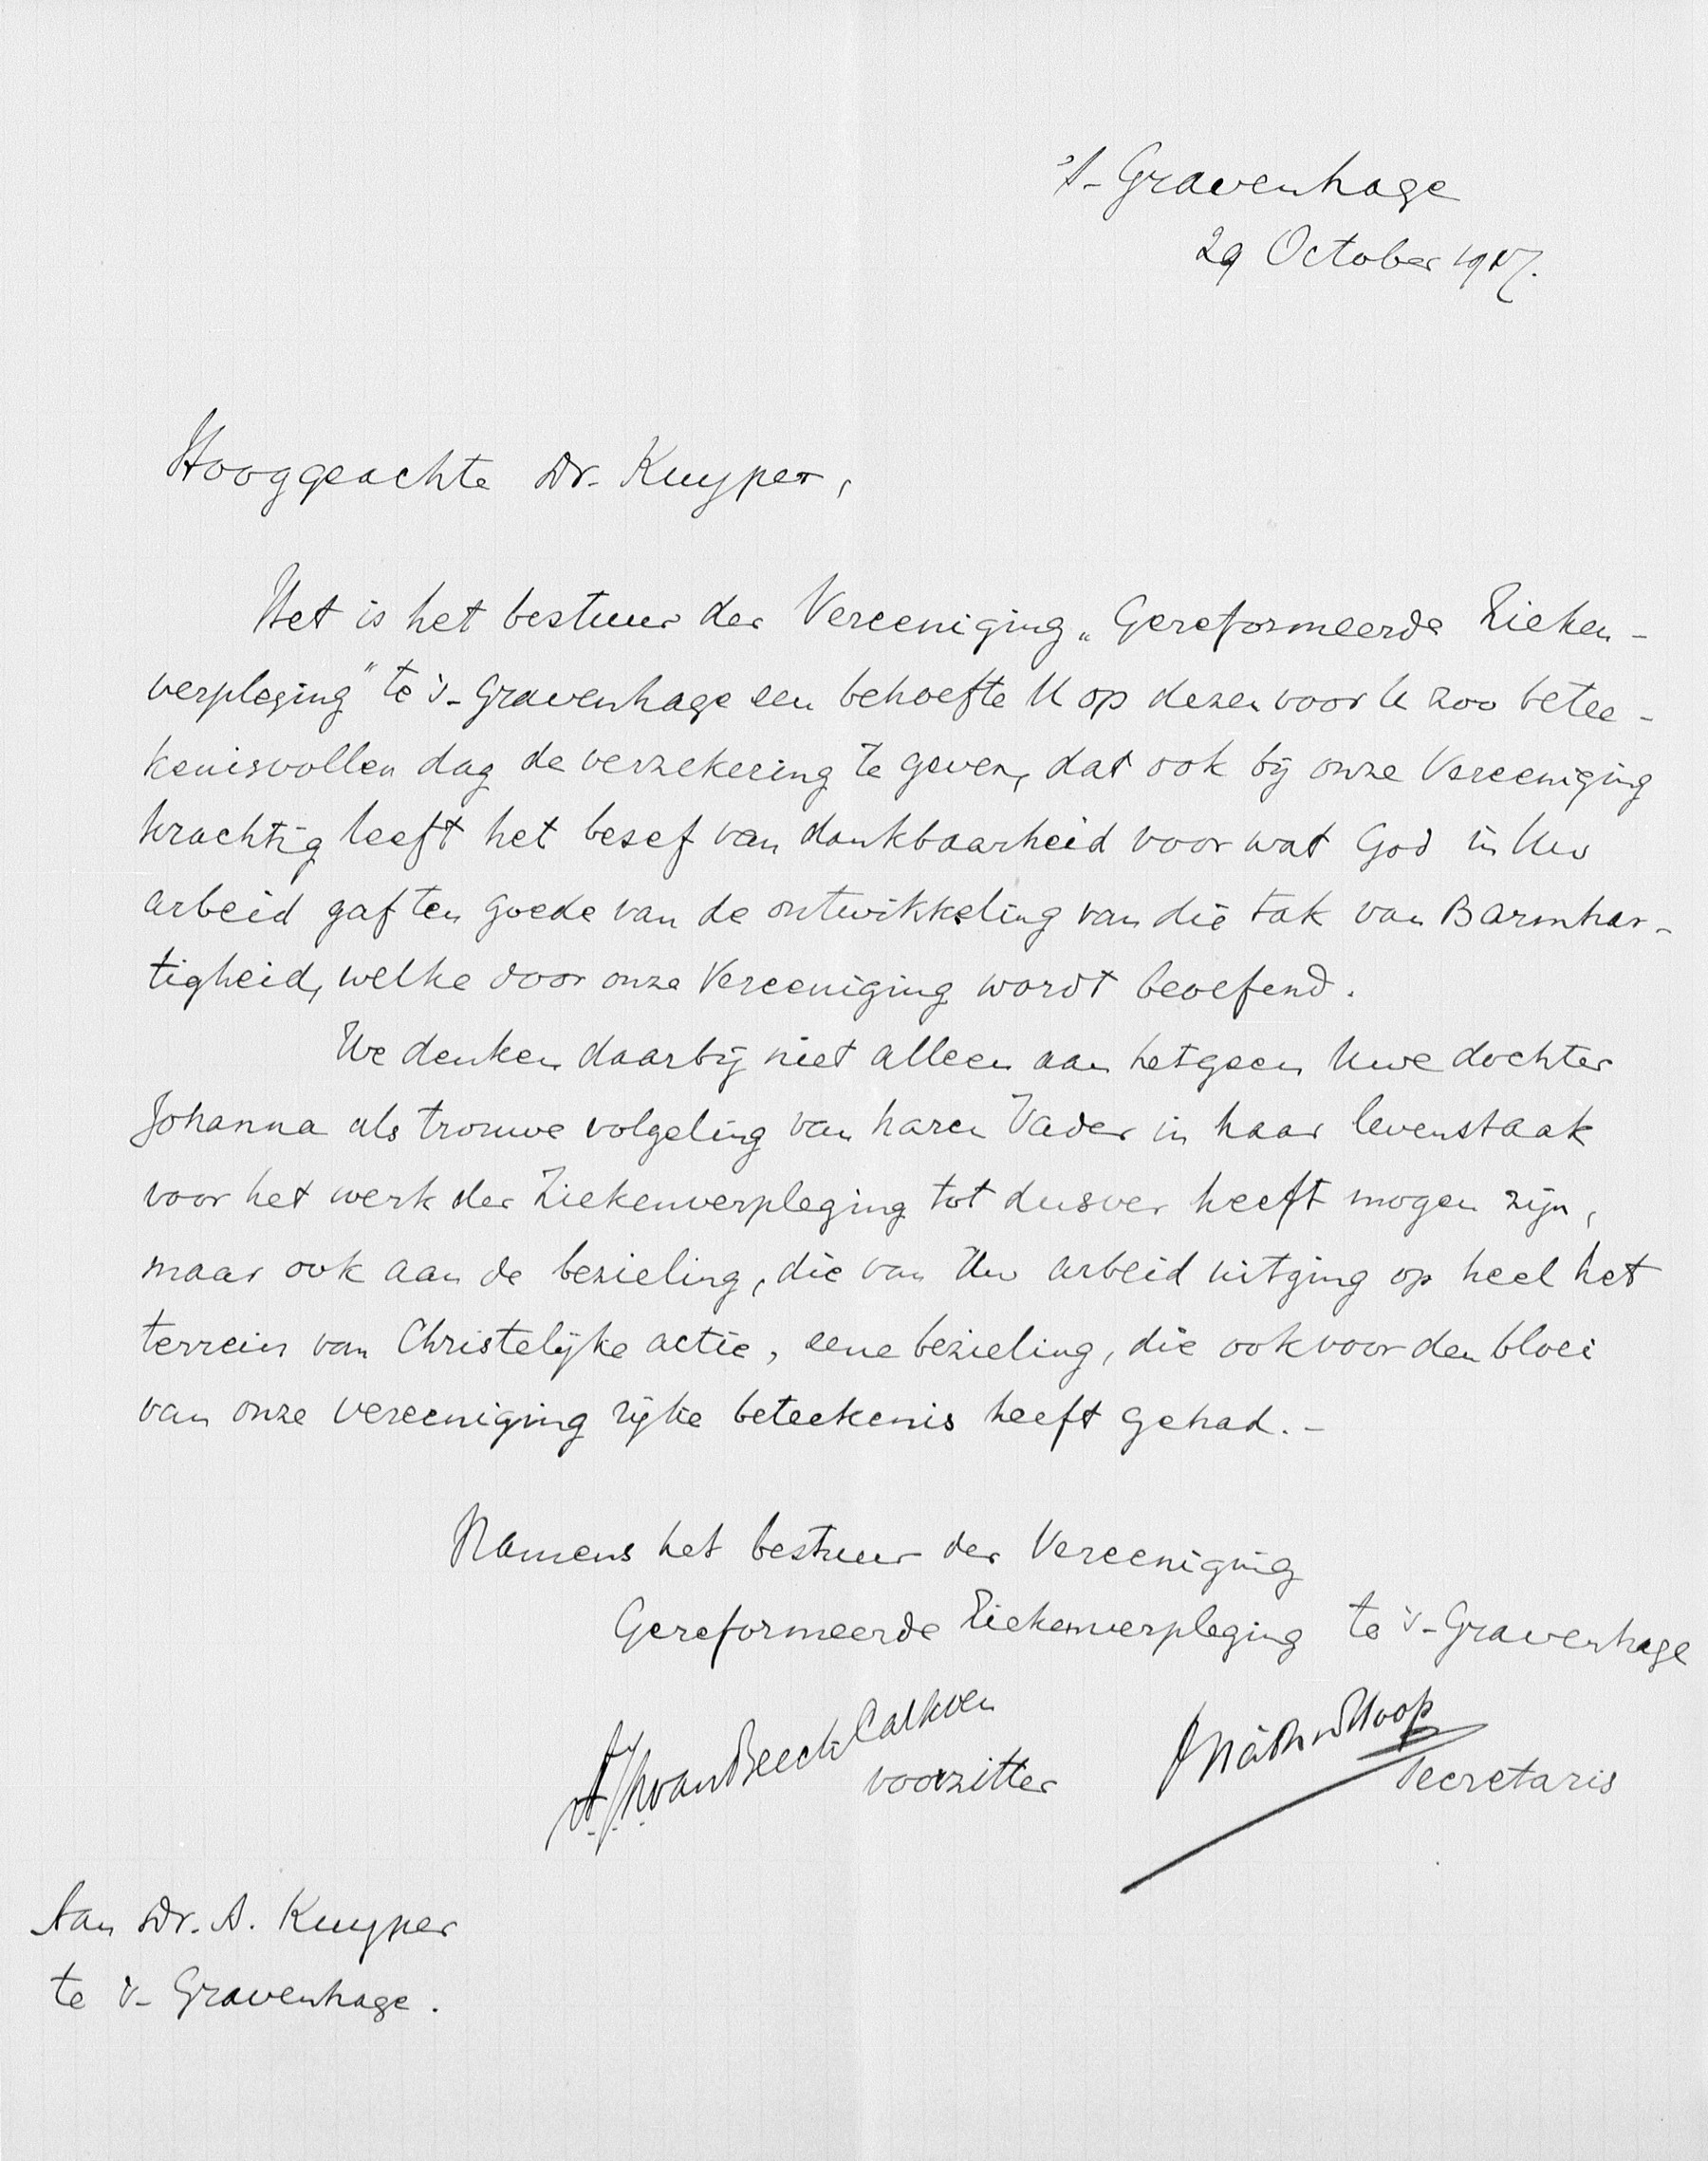 's-Gravenhage
29 October 1917.
Hooggeachte Dr. Kuyper,
Het is het bestuur der Vereeniging „Gereformeerde Zieken-
verpleging" te 's-Gravenhage een behoefte U op dezen voor U zoo betee-
kenisvollen dag de verzekering te geven, dat ook bij onze Vereeniging
krachtig leeft het besef van dankbaarheid voor wat God in Uw
arbeid gaf ten goede van de ontwikkeling van die tak van Barmhar-
tigheid, welke door onze Vereeniging wordt beoefend.
We denken daarbij niet alleen aan hetgeen Uwe dochter
Johanna als trouwe volgeling van haren Vader in haar levenstaak
voor het werk der Ziekenverpleging tot dusver heeft mogen zijn,
maar ook aan de bezieling, die van Uw arbeid uitging op heel het
terrein van Christelijke actie, eene bezieling, die ook voor den bloei
van onze vereeniging rijke beteekenis heeft gehad. -
Namens het bestuur der Vereeniging
Gereformeerde Ziekenverpleging te 's-Gravenhage
van Beeck Calkoen
voorzitter
Secretaris
Aan Dr. A. Kuyper
te 's-Gravenhage.